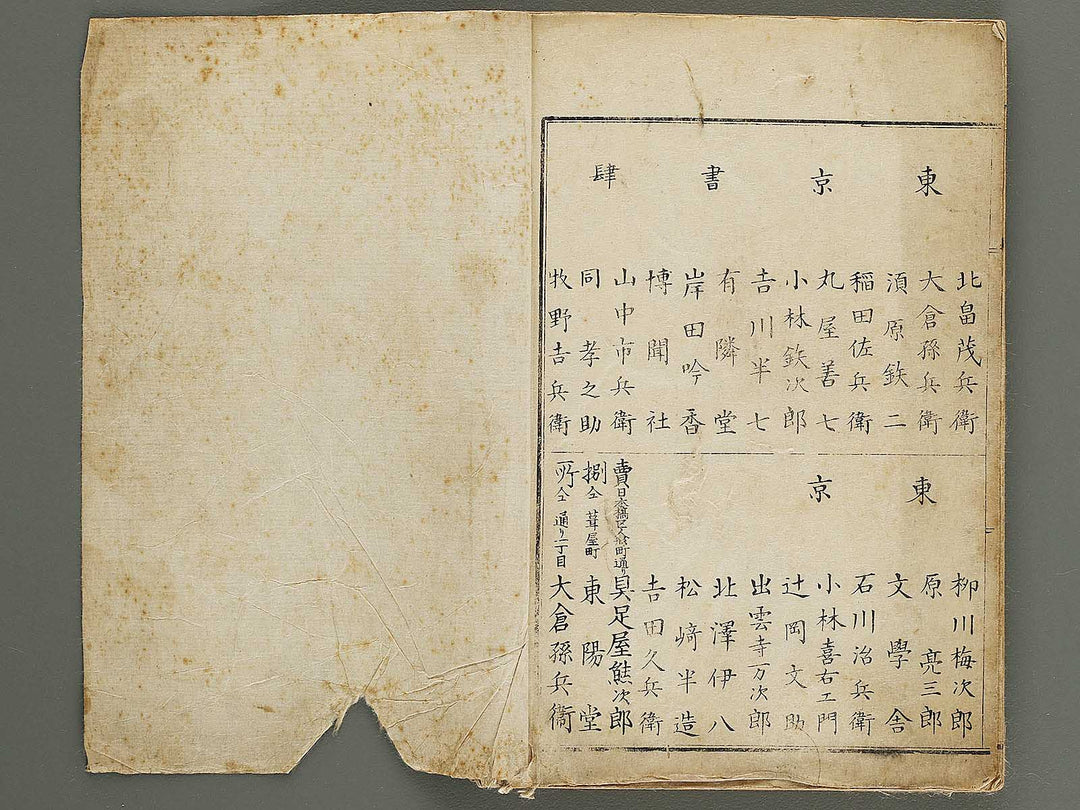 東京書肆
北畠茂兵衛
大倉孫兵衛
須原鉄二
稲田佐兵衛
丸屋善七
小林鉃次郎
吉川半七
有隣堂
岸田吟香
博聞社
山中市兵衛
同孝之助
牧野吉兵衛
東京
柳川梅次郎
原亮三郎
文學舎
石川治兵衛
小林喜右エ門
辻岡文助
出雲寺万次郎
北澤伊八
松﨑半造
吉田久兵衛
賣捌所
日本橋区人形町通り 具足屋熊次郎
仝 葺屋町 東陽堂
仝 通り一丁目 大倉孫兵衛